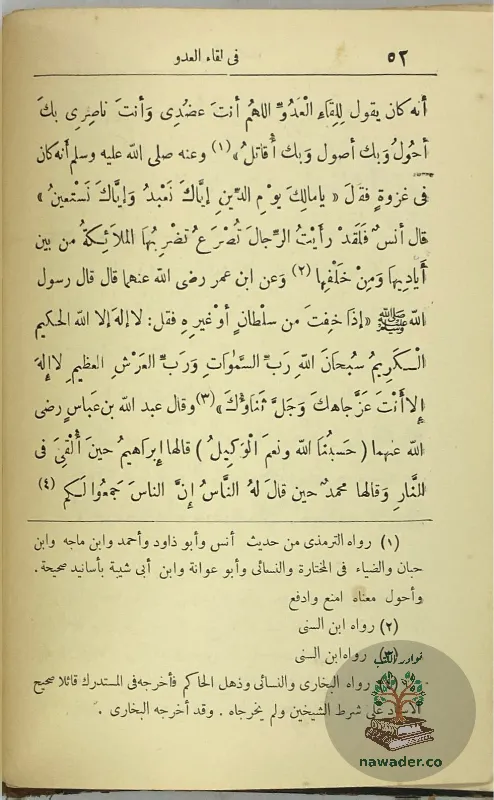 ٥٢
فى لقاء العدو
أنه كان يقول لِلِقاءِ الْعَدُوِّ اللهُمَّ أنتَ عضُدِى وَأنتَ ناصِرِى بكَ
أحُولُ وَبك أصول وَبك أُقاتلُ» (١) وعنه صلى الله عليه وسلم أنه كان
فى غزوةٍ فقَلَ « يامالِكَ يوْمِ الدِّينِ إيَّاكَ نَعْبدُ وَإيَّاكَ نَسْتعينُ »
قال أنسٌ فَلَقدْ رأيْتُ الرِّجالَ تُصْرَعُ تضْرِبُهَا الملاَئِكةُ من بين
أيْدِيها وَمِنْ خَلْفِها (٢) وَعن ابن عمر رضى الله عنهما قال قال رسول
الله ﷺ «إذَا خِفتَ من سلْطانٍ أوْ غيرِهِ فقل: لا إلهَ إلا الله الحكيم
الـكَرِيمُ سُبحَانَ اللهِ رَبِّ السَّمٰوَاتِ وَرَبِّ العَرْشِ العظيمِ لا إلهَ
إلا أنْتَ عَزَّ جاهكَ وَجَلَّ ثَناؤكَ» (٣) وقال عبد الله بن عبَّاسٍ رضى
الله عنهما ( حَسبُنَا الله ونعمَ الوَكِيلُ ) قالها إبرَاهيمُ حينَ أُلْقِىَ فى
النَّارِ وَقالها محمدٌ حين قالَ لهُ النَّاسُ إنَّ الناسَ جَمعُوا لَـكم (٤)
(١) رواه الترمذى من حديث أنس وأبو داود وأحمد وابن ماجه وابن
حبان والضياء فى المختارة والنسائى وأبو عوانة وابن أبى شيبة بأسانيد صحيحة .
وأحول معناه امنع وادفع
(٢) رواه ابن السنى
(٣) رواه ابن السنى
رواه البخارى والنسائى وذهل الحاكم فأخرجه فى المستدرك قائلا صحيح
على شرط الشيخين ولم يخرجاه . وقد أخرجه البخارى .
نوادر الكتب
nawader.co